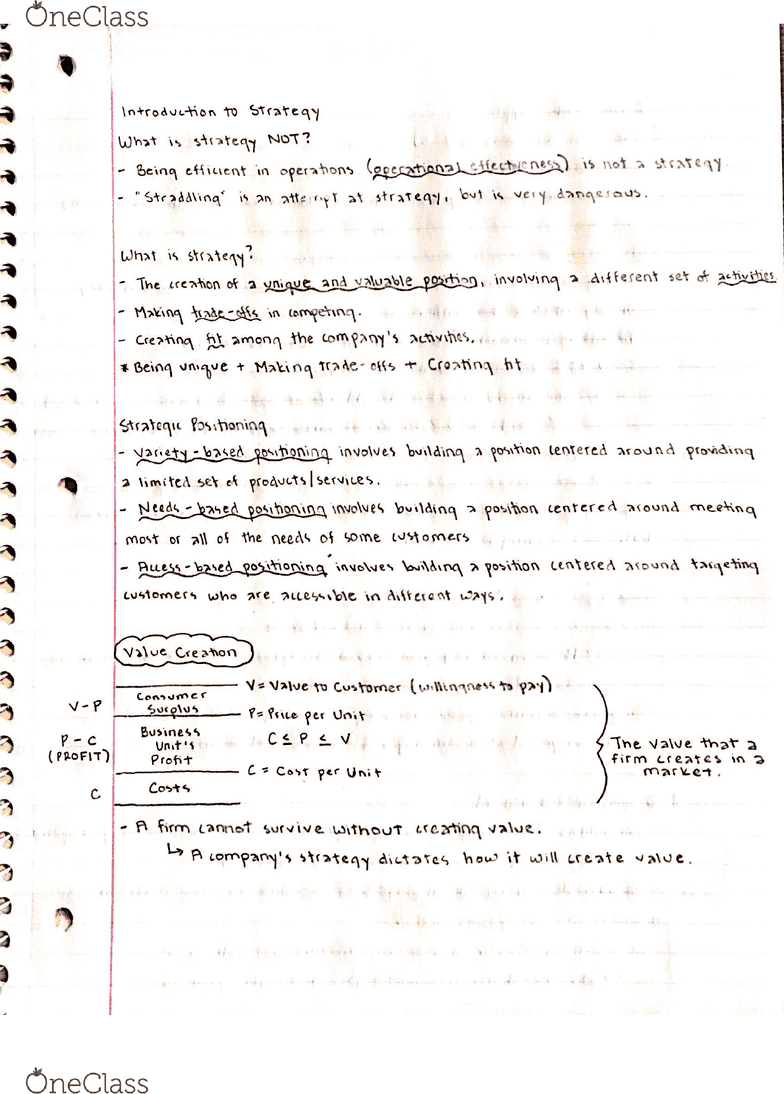 OneClass
Introduction to Strategy
What is strategy NOT?
- Being efficient in operations (operational effectiveness) is not a strategy
- "Straddling" is an attempt at strategy, but is very dangerous.
What is strategy?
- The creation of a unique and valuable position, involving a different set of activities
- Making trade-offs in competing.
- Creating fit among the company's activities.
* Being unique + Making trade-offs + Creating fit
Strategic Positioning
- Variety-based positioning involves building a position centered around providing
a limited set of products/services.
- Needs-based positioning involves building a position centered around meeting
most or all of the needs of some customers
- Access-based positioning involves building a position centered around targeting
customers who are accessible in different ways.
Value Creation
V = Value to Customer (willingness to pay)
V-P
Consumer
Surplus
P = Price per Unit
P-C
(PROFIT)
Business
Unit's
Profit
C ≤ P ≤ V
C = Cost per Unit
C
Costs
The value that a
firm creates in a
market.
- A firm cannot survive without creating value.
↳ A company's strategy dictates how it will create value.
OneClass